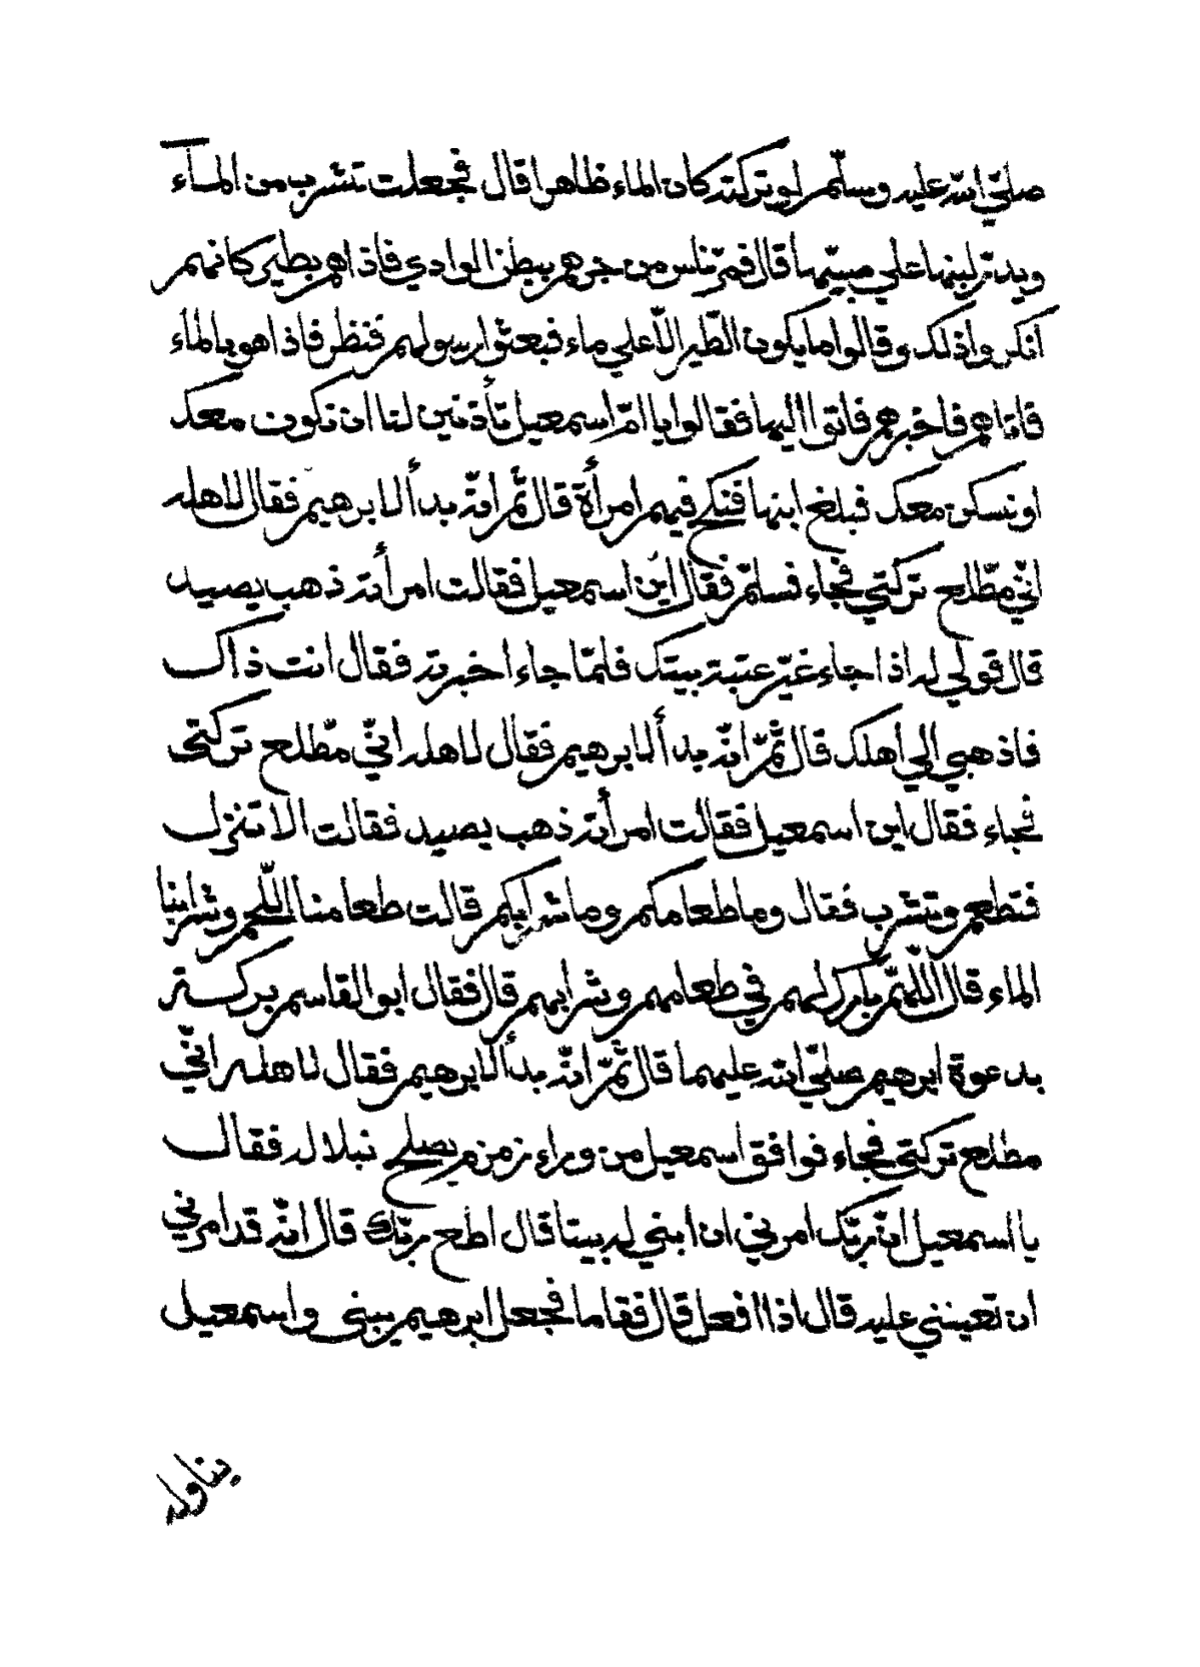 صلّي الله عليه وسلّم لو تركته كان الماء ظاهرا قال فجعلت تشرب من المآء
ويدرّ لبنها علي صبيّها قال فمرّ ناس من جرهم ببطن الوادي فاذاهم بطير كانهم
انكروا ذلك وقالوا ما يكون الطّير الّا علي ماء فبعثوا رسولهم فنظر فاذا هو بالماء
فاتاهم فاخبرهم فاتوا اليها فقالوا يا امّ اسمعيل تأذنين لنا ان نكون معك
او نسكن معك فبلغ ابنها فنكح فيهم امرأة قال ثمّ انّه بدأ لابرهيم فقال لاهله
انّي مطّلع تركتي فجاء فسلّم فقال اين اسمعيل فقالت امرأته ذهب يصيد
قال قولي له اذا جاء غيّر عتبة بيتك فلمّا جاء اخبرته فقال انت ذاك
فاذهبي الي أهلك قال ثمّ انّه بدأ لابرهيم فقال لاهله انّي مطّلع تركتى
فجاء فقال اين اسمعيل فقالت امرأته ذهب يصيد فقالت الا تنزل
فتطعم وتشرب فقال وما طعامكم وما شرابكم قالت طعامنا اللّحم وشرابنا
الماء قال اللّهمّ بارك لهم في طعامهم وشرابهم قال فقال ابو القاسم بركة
بدعوة ابرهيم صلّي الله عليهما قال ثمّ انّه بدأ لابرهيم فقال لاهله انّي
مطلع تركتي فجاء فوافق اسمعيل من وراء زمزم يصلح نبلا له فقال
يا اسمعيل انّ ربّك امرني ان ابني له بيتا قال اطع ربّك قال انّه قد امرني
ان تعينني عليه قال اذا افعل قال فقاما فجعل ابرهيم يبنى واسمعيل
يناوله